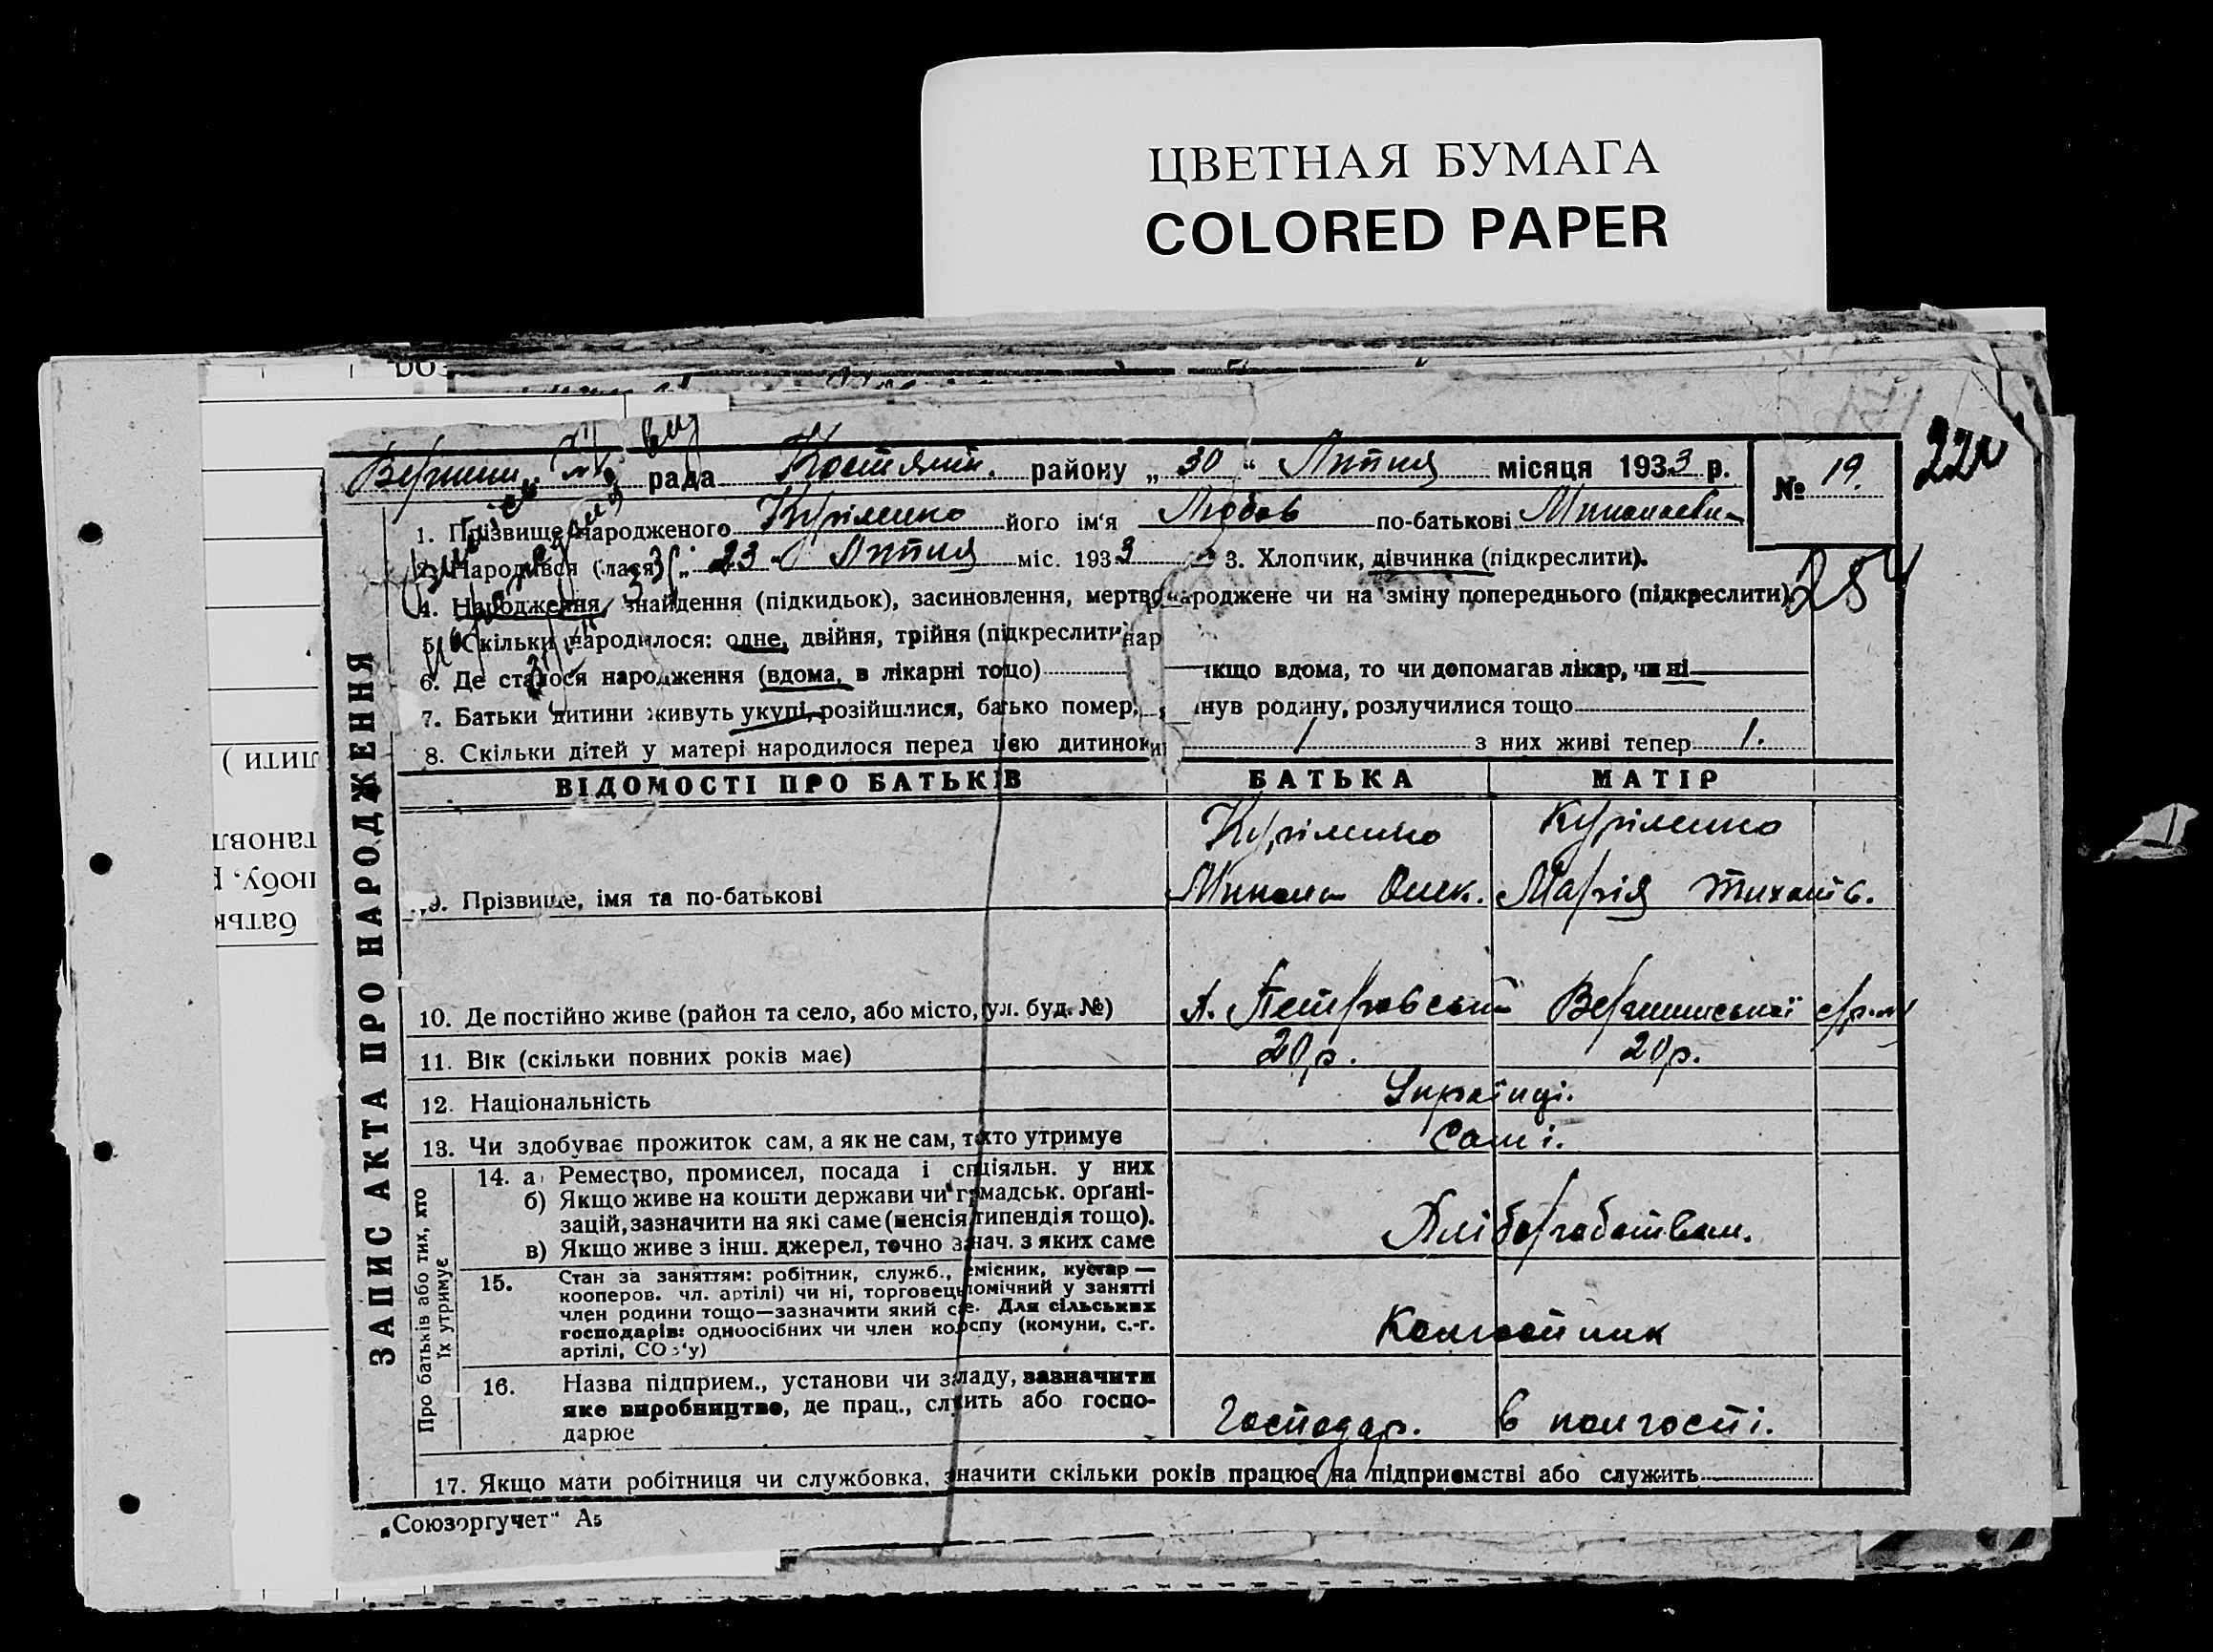 ЦВЕТНАЯ БУМАГА
COLORED PAPER
рада Костянт. району „ 30 “ Липня місяця 1933 р.
№ 19.
22
1. Прізвище народженого Куріленко його ім'я Любов по-батькові Миколаевн
2. Народився (лася) „ 23 “ Липня міс. 1933 3. Хлопчик, дівчинка (підкреслити).
254
4. Народження, знайдення (підкидьок), засиновлення, мертвонароджене чи на зміну попереднього (підкреслити)
5. Скільки народилося: одне, двійня, трійня (підкреслити
6. Де сталося народження (вдома, в лікарні тощо) якщо вдома, то чи допомагав лікар, чи ні
7. Батьки дитини живуть укупі, розійшлися, батько помер, нув родину, розлучилися тощо
8. Скільки дітей у матері народилося перед цією дитиною 1 з них живі тепер 1.
ВІДОМОСТІ ПРО БАТЬКІВ БАТЬКА МАТІР
Куріленко Куріленко
9. Прізвище, імя та по-батькові Микола Олек. Марія Тихонів.
10. Де постійно живе (район та село, або місто, ул. буд. №) Петровськ
11. Вік (скільки повних років має) 20 р. 20 р.
12. Національність Українці.
13. Чи здобуває прожиток сам, а як не сам, то хто утримує Самі.
14. а) Ремество, промисел, посада і спціяльн. у них
б) Якщо живе на кошти держави чи громадськ. орґані-
зацій, зазначити на які саме (пенсія, типендія тощо).
в) Якщо живе з інш. джерел, точно знач. з яких саме
Хліборобством.
15. Стан за заняттям: робітник, служб., ремісник, кустар —
кооперов. чл. артілі) чи ні, торговець, помічний у занятті
член родини тощо—зазначити який саме. Для сільських
господарів: одноосібних чи член корспу (комуни, с.-г.
артілі, СОЗ'у)
Колгоспник
16. Назва підприєм., установи чи закладу, зазначити
яке виробництво, де прац., служить або госпо-
дарює
Господар. в колгоспі.
17. Якщо мати робітниця чи службовка, значити скільки років працює на підприємстві або служить
ЗАПИС АКТА ПРО НАРОДЖЕННЯ
Про батьків або тих, хто
їх утримує
„Союзоргучет“ А5